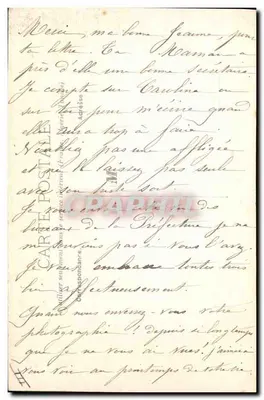 Merci, ma bonne Jeanne, pour
ta lettre. Ta Maman a
près d'elle une bonne secrétaire.
Je compte sur Pauline ou
sur toi pour m'écrire quand
elle aura trop à faire.
pas une affligée
et ne la laissez pas seule
avec son triste sort.
Je vous
bureaux de la Préfecture je ne
me souviens pas si vous l'avez.
Je vous embrasse toutes trois
bien affectueusement.
Quand nous enverrez-vous votre
photographie ! depuis si longtemps
que je ne vous ai vues ! j'aimerais
vous voir au printemps de votre vie
CARTE POSTALE